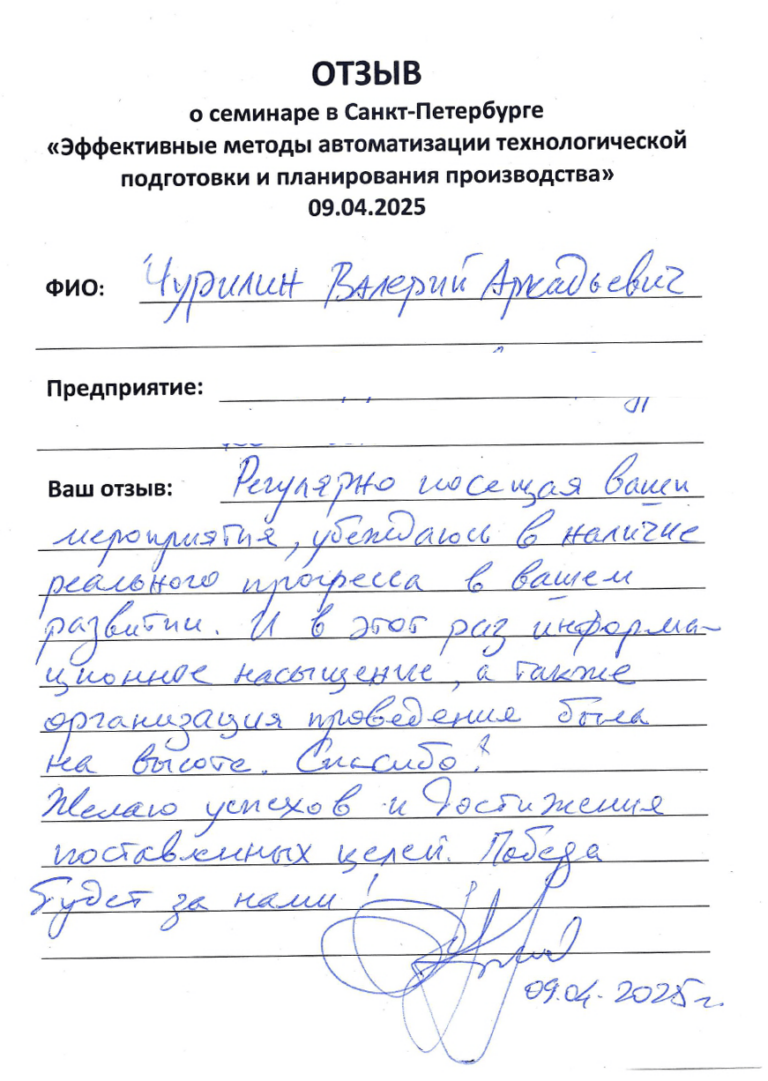 ОТЗЫВ
о семинаре в Санкт-Петербурге
«Эффективные методы автоматизации технологической
подготовки и планирования производства»
09.04.2025
ФИО: Чурилин Валерий Аркадьевич
Предприятие:
Ваш отзыв: Регулярно посещая ваши
мероприятия, убеждаюсь в наличие
реального прогресса в вашем
развитии. И в этот раз информа-
ционное насыщение, а также
организация проведения была
на высоте. Спасибо!
Желаю успехов и достижения
поставленных целей. Победа
будет за нами!
09.04.2025г.